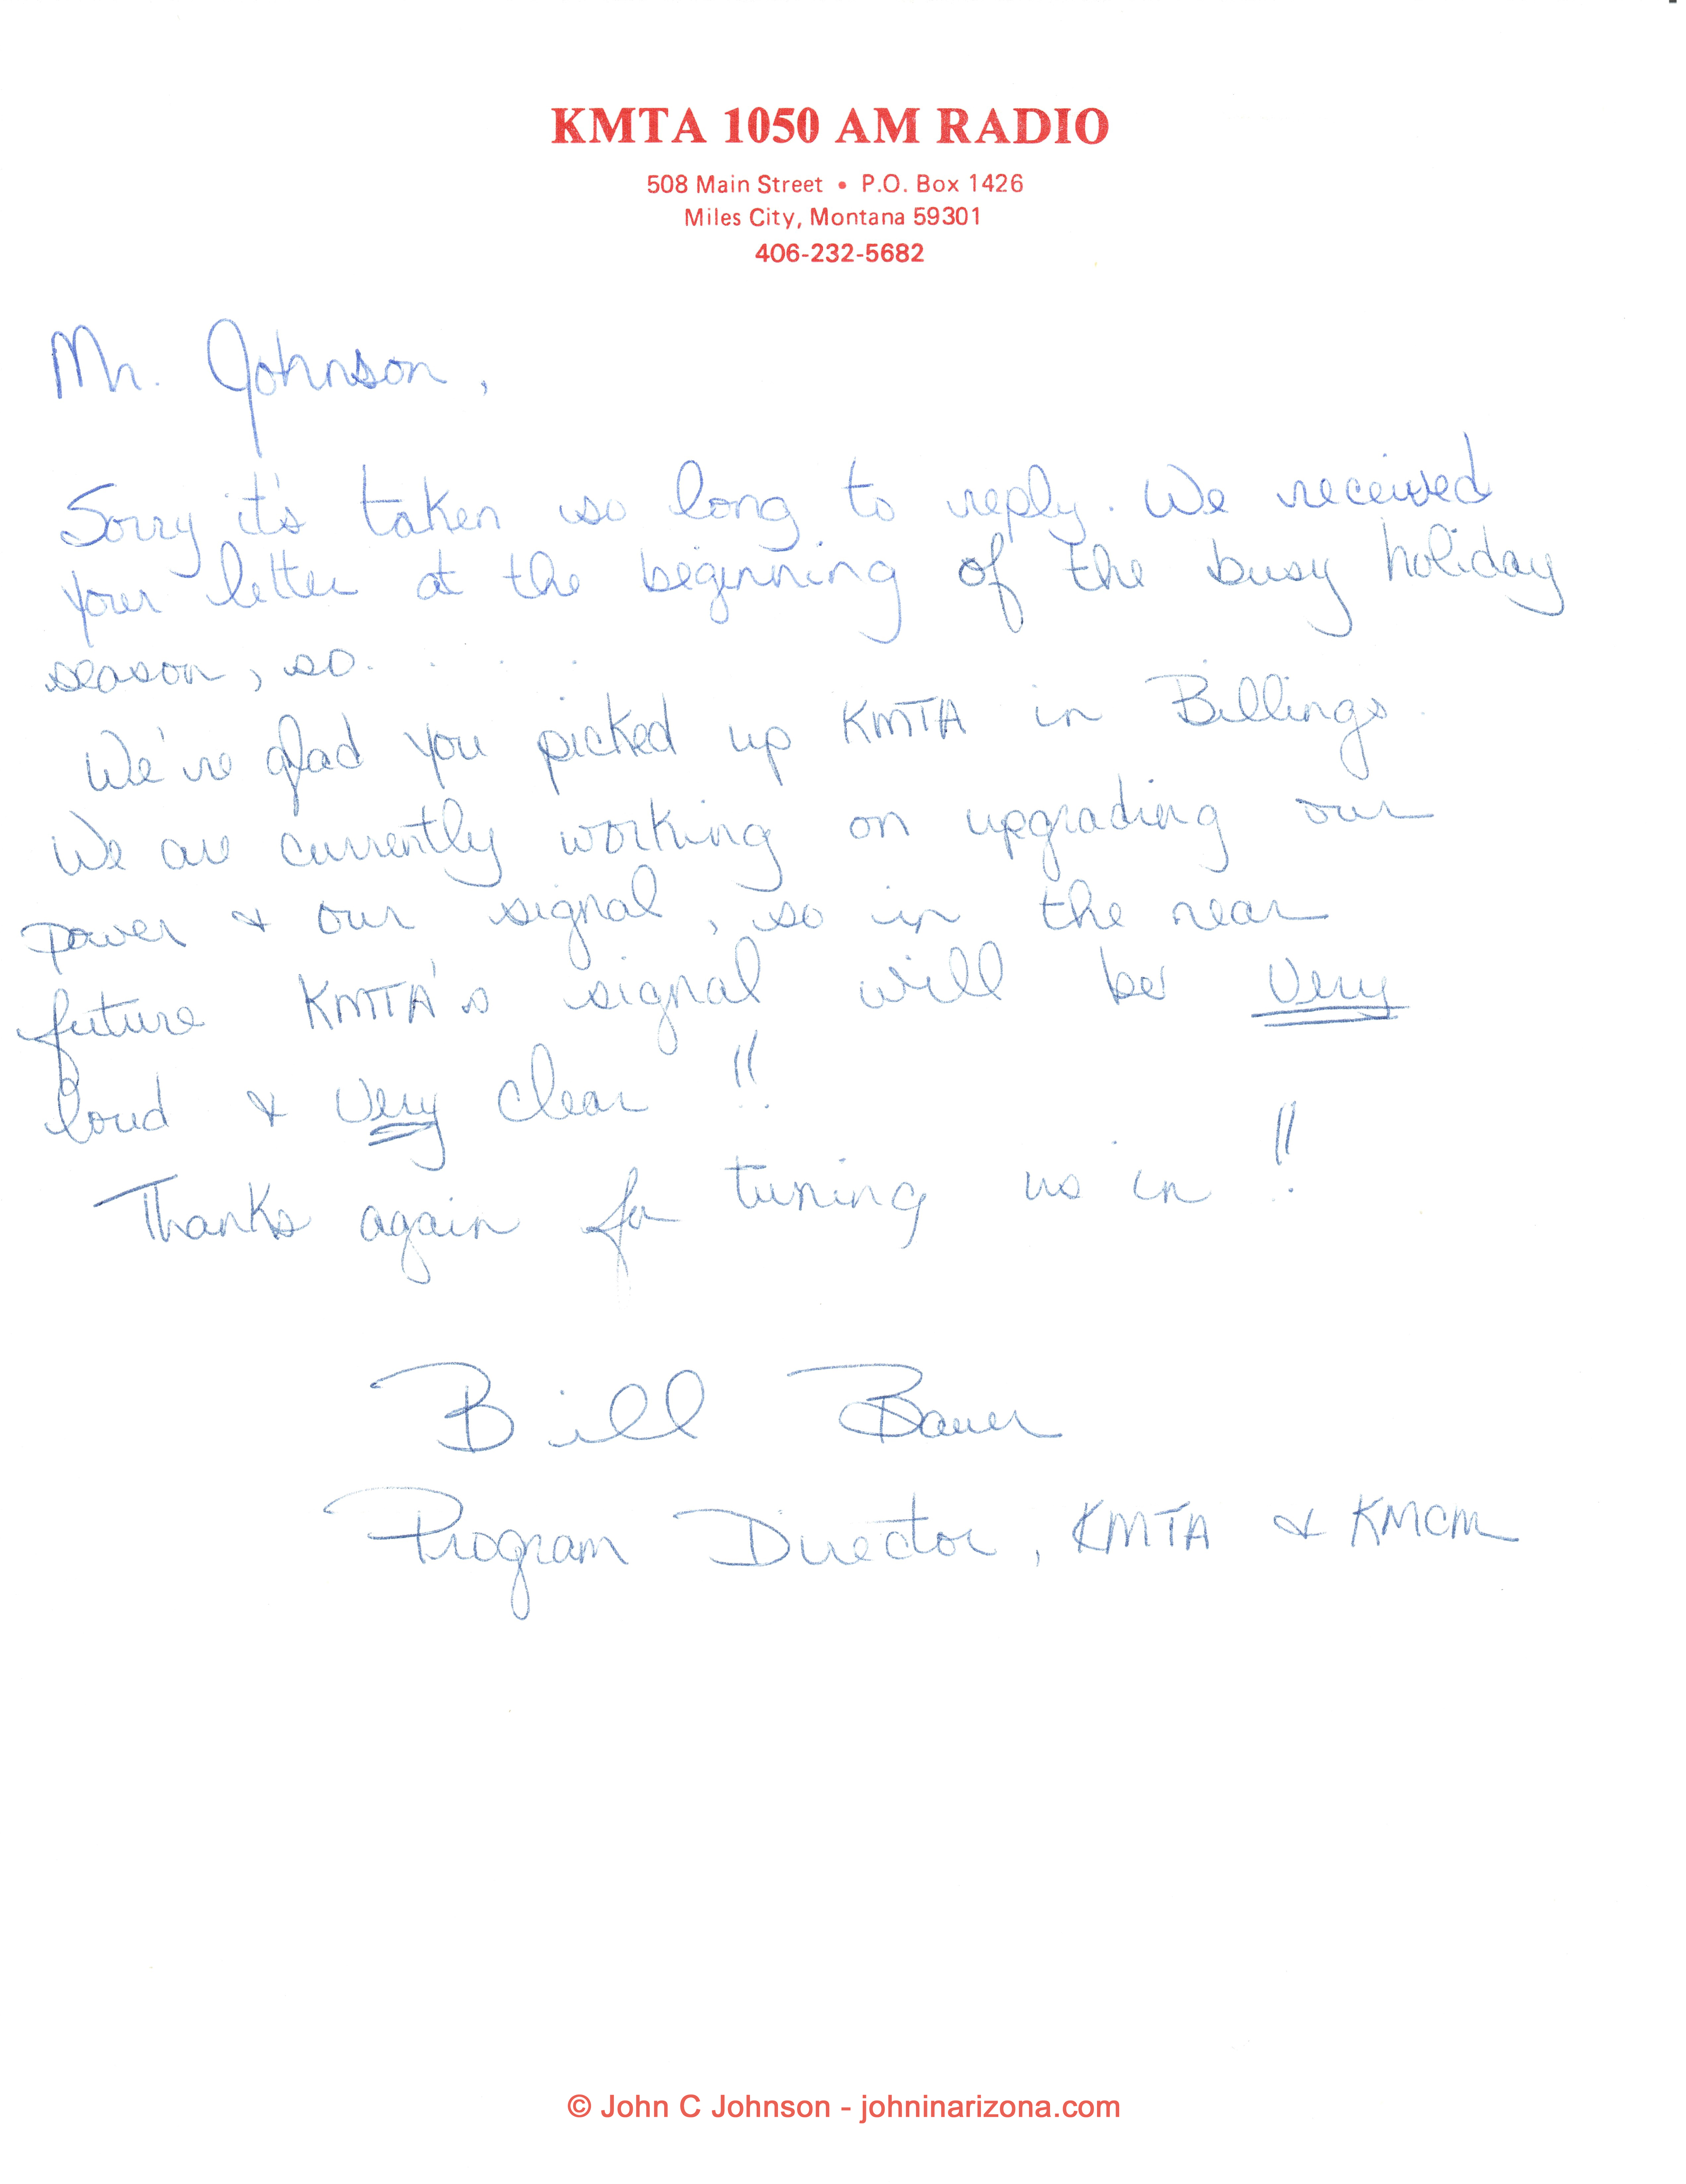 KMTA 1050 AM RADIO
508 Main Street • P.O. Box 1426
Miles City, Montana 59301
406-232-5682
Mr. Johnson,
Sorry it's taken so long to reply. We received
your letter at the beginning of the busy holiday
season, so. . . . .
We're glad you picked up KMTA in Billings.
We are currently working on upgrading our
power & our signal, so in the near
future KMTA's signal will be very
loud & very clear!!
Thanks again for tuning us in!!
Bill Bauer
Program Director, KMTA & KMCM
© John C Johnson - johninarizona.com